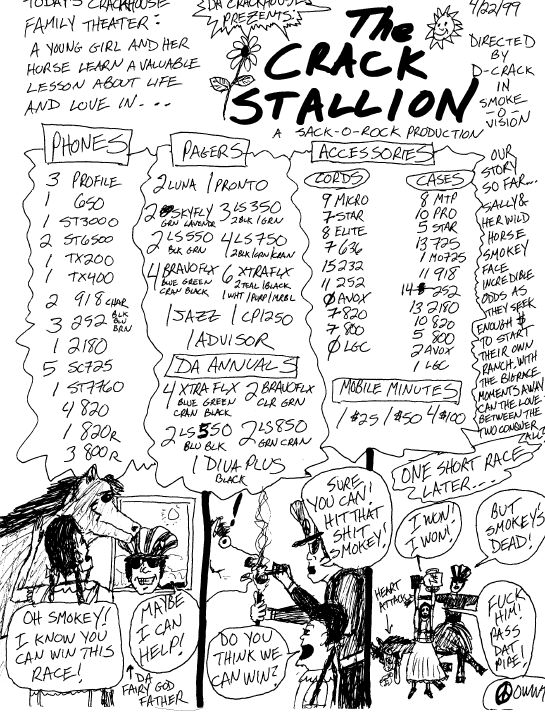 TODAY'S CRACKHOUSE
FAMILY THEATER:
A YOUNG GIRL AND HER
HORSE LEARN A VALUABLE
LESSON ABOUT LIFE
AND LOVE IN---
DA CRACKHOUSE
PREZENTS:
The
CRACK
STALLION
A SACK-O-ROCK PRODUCTION
4/22/99
DIRECTED
BY
D-CRACK
IN
SMOKE
-O-
VISION
PHONES
3 PROFILE
1 650
1 ST3000
2 ST6500
1 TX200
1 TX400
2 918 CHAR
3 252 BLK BLU BRN
1 2180
5 SC725
1 ST7760
4 820
1 820R
3 800R
PAGERS
2 LUNA 1 PRONTO
2 SKYFLY 3 LS350
GRN LAVENDR 2BLK 1GRN
2 LS550 4 LS750
BLK GRN 2BLK 1GRN 1CRAN
4 BRAVOFLX 6 XTRAFLX
BLUE GREEN 2TEAL 1BLACK
CRAN BLACK 1WHT 1PURP 1MRBL
1 JAZZ 1 CP1250
1 ADVISOR
DA ANNUALS
4 XTRAFLX 2 BRAVOFLX
BLUE GREEN CLR GRN
CRAN BLACK
2 LS550 2 LS850
BLU BLK GRN CRAN
1 DIVA PLUS
BLACK
ACCESSORIES
CORDS
9 MICRO
7 STAR
8 ELITE
7 636
15 232
11 252
0 AVOX
7 820
7 800
0 LGC
CASES
8 MTP
10 PRO
5 STAR
13 725
1 MO725
11 918
14 252
13 2180
10 820
5 800
2 AVOX
1 LGC
MOBILE MINUTES
1 $25 1 $50 4 $100
OUR
STORY
SO FAR...
SALLY &
HER WILD
HORSE
SMOKEY
FACE
INCREDIBLE
ODDS AS
THEY SEEK
ENOUGH $
TO START
THEIR OWN
RANCH. WITH
THE BIG RACE
MOMENTS AWAY
CAN THE LOVE
BETWEEN THE
TWO CONQUER
ALL?
OH SMOKEY!
I KNOW YOU
CAN WIN THIS
RACE!
MAYBE
I CAN
HELP!
DA
FAIRY GOD
FATHER
!
SURE
YOU CAN!
HIT THAT
SHIT
SMOKEY!
DO YOU
THINK WE
CAN WIN?
ONE SHORT RACE
LATER....
I WON!
I WON!
BUT
SMOKEY'S
DEAD!
HEART
ATTACK
FUCK
HIM!
PASS
DAT
PIPE!